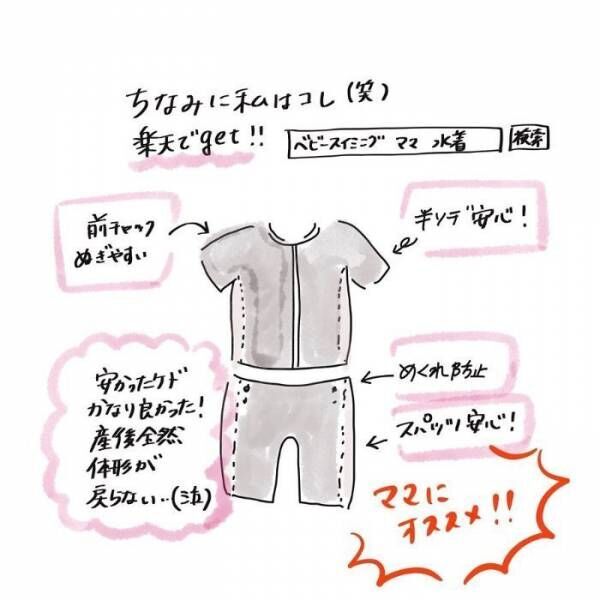 ちなみに私はコレ(笑)
楽天でget!!
ベビースイミング ママ 水着 検索
前チャック
ぬぎやすい
半ソデ安心!
めくれ防止
スパッツ安心!
安かったケド
かなり良かった!
産後全然
体形が
戻らない..(泣)
ママに
オススメ!!